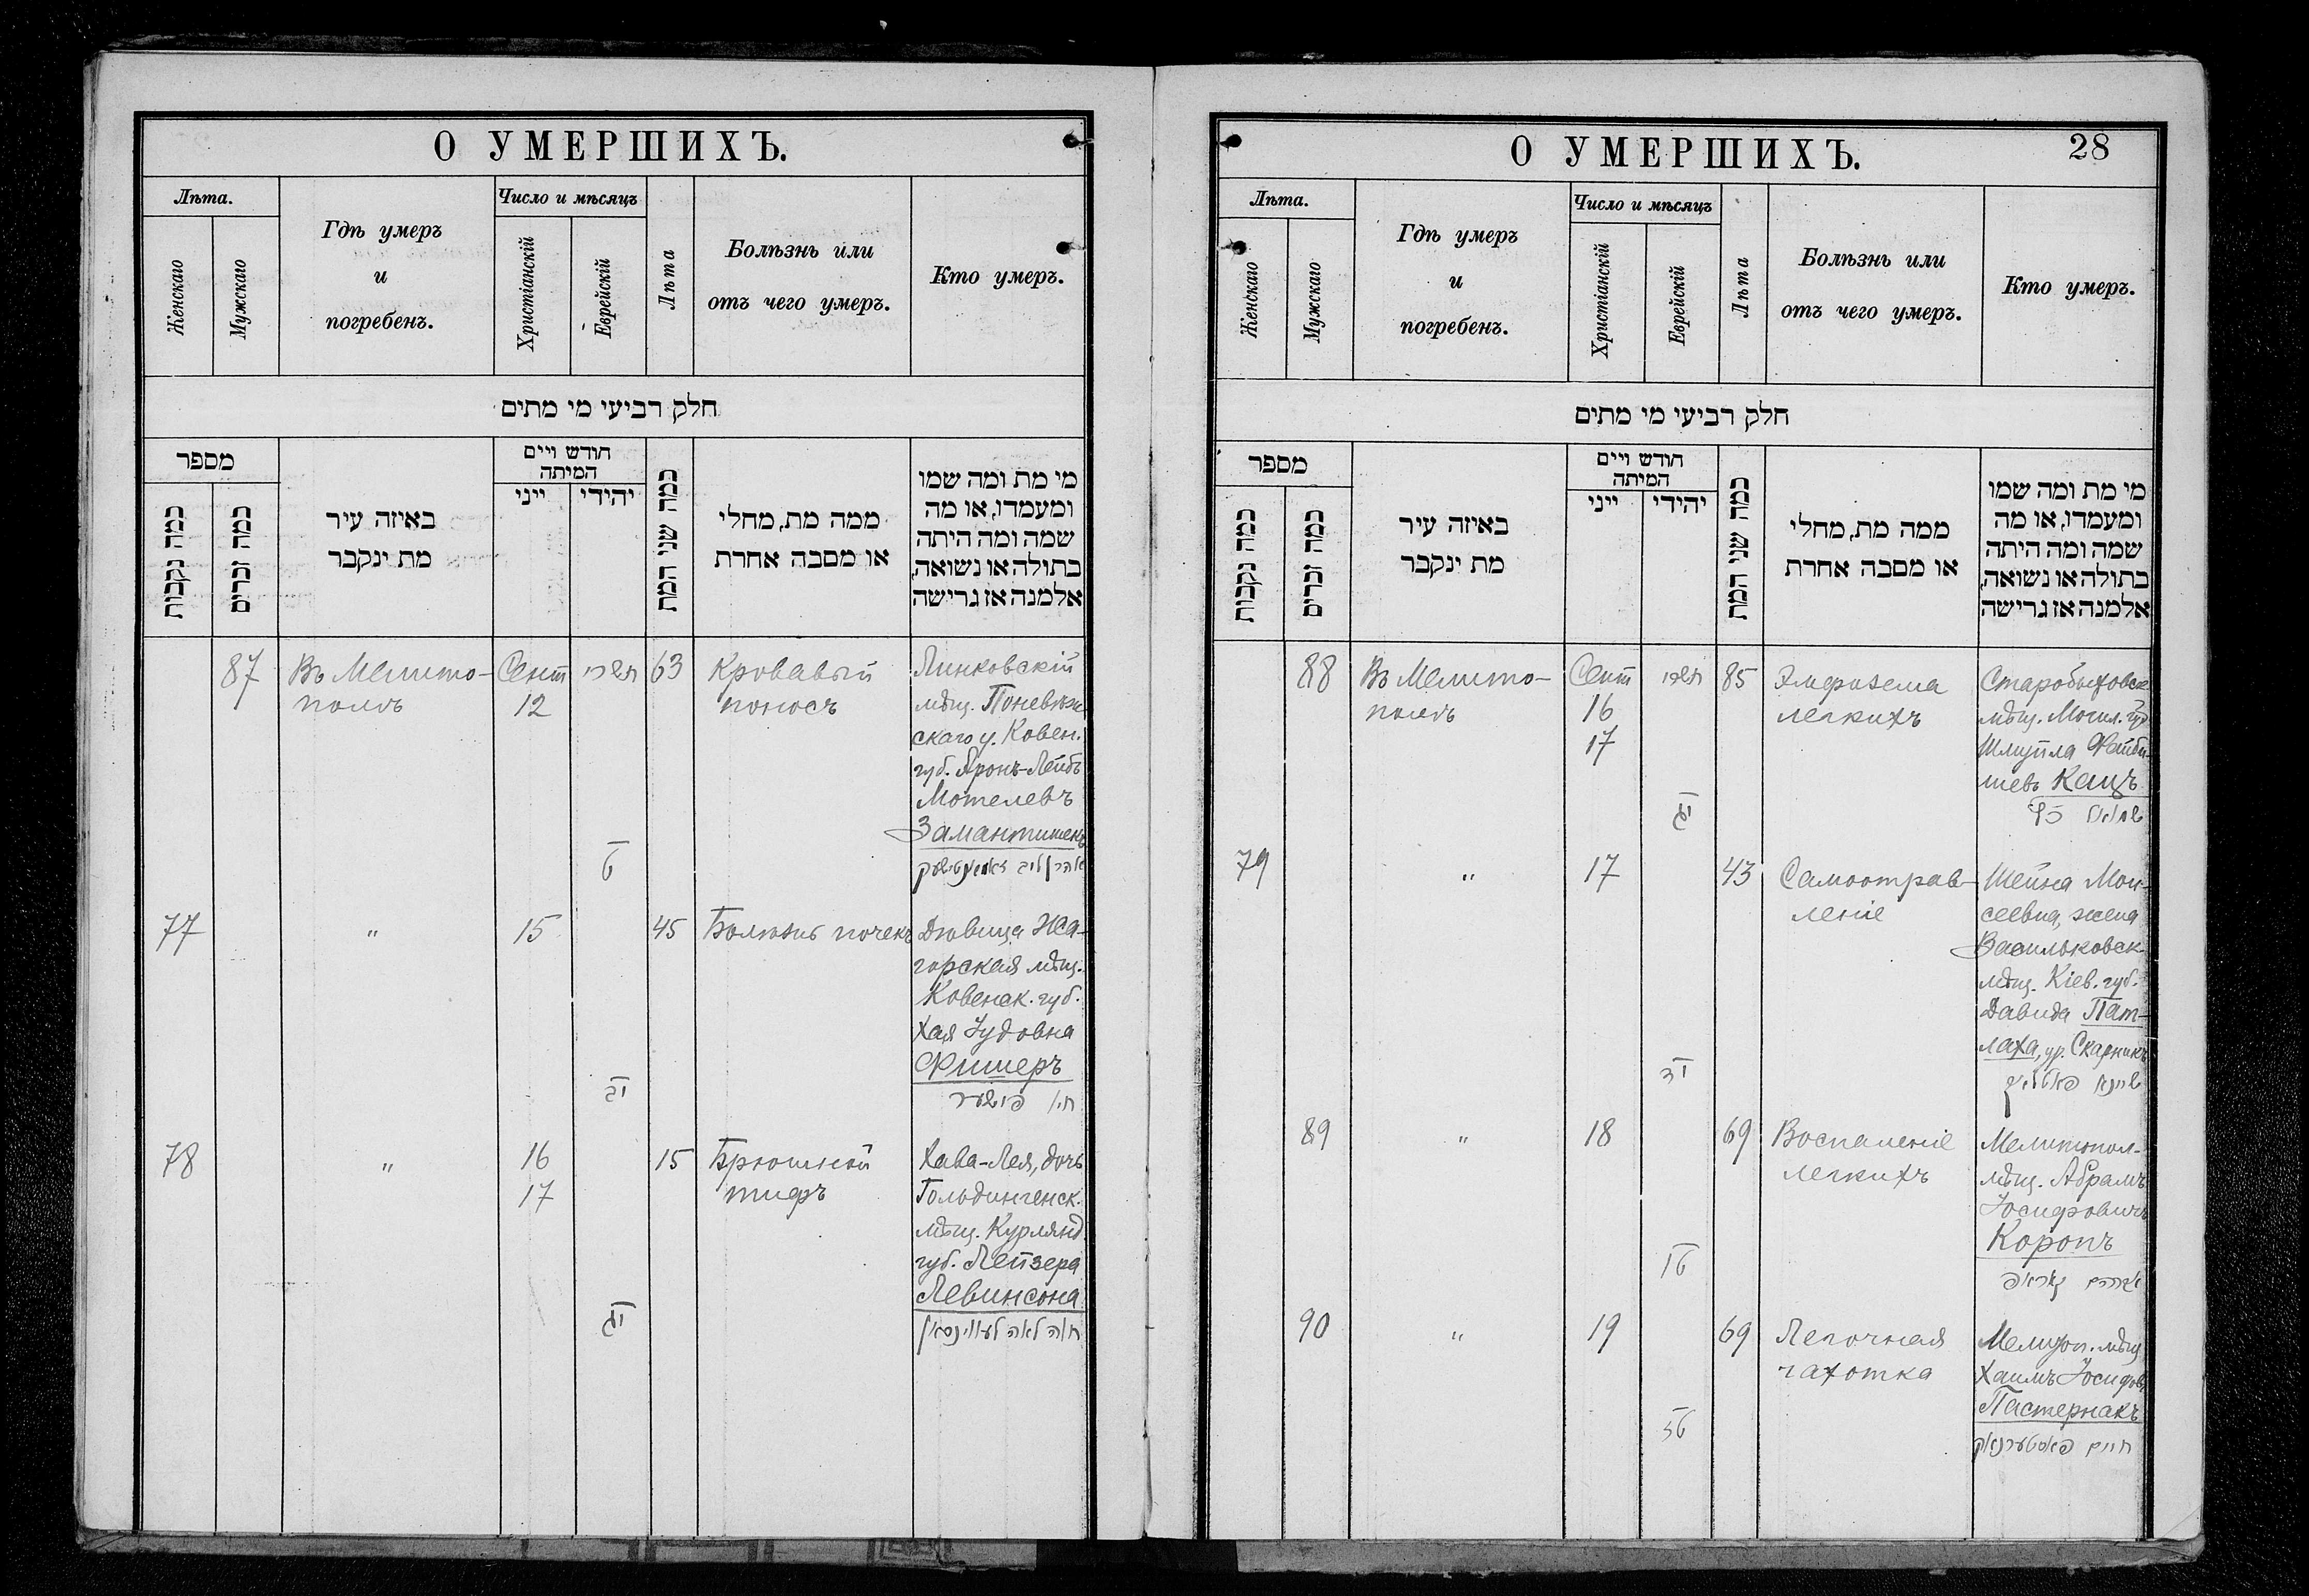 О УМЕРШИХЪ.
Лѣта.
Женскаго
Мужскаго
Гдѣ умеръ
и
погребенъ.
Число и мѣсяцъ
Христіанскій
Еврейскій
Лѣта
Болѣзнь или
отъ чего умеръ.
Кто умеръ.
חלק רביעי מי מתים
מספר
כמה נקבות
כמה זכרים
באיזה עיר
מת ינקבר
חודש ויים
המיתה
ייני
יהודי
כמה שני המת
ממה מת, מחלי
או מסבה אחרת
מי מת ומה שמו
ומעמדו, או מה
שמה ומה היתה
בתולה או נשואה,
אלמנה אז גרישה
87
Въ Мелито-
полѣ
Сент
12
תשרי
ט
63
Кровавый
поносъ
Линковскій
мѣщ. Поневѣж
скаго у. Ковен.
губ. Аронъ-Лейбъ
Мотелевъ
Замантишекъ
אהרן ליב זאמאנטישעק
77
"
15
יב
45
Болѣзнь почекъ
Дѣвица Жа-
горская мѣщ.
Ковенск. губ.
Хая Іудовна
Фишеръ
חי' פישער
78
"
16
17
יג
15
Брюшной
тифъ
Хава-Лея, дочь
Гольдингенск.
мѣщ. Курлянд
губ. Лейзера
Левинсона
חוה לאה לעווינסאן
О УМЕРШИХЪ.
28
Лѣта.
Женскаго
Мужскаго
Гдѣ умеръ
и
погребенъ.
Число и мѣсяцъ
Христіанскій
Еврейскій
Лѣта
Болѣзнь или
отъ чего умеръ.
Кто умеръ.
חלק רביעי מי מתים
מספר
כמה נקבות
כמה זכרים
באיזה עיר
מת ינקבר
חודש ויים
המיתה
ייני
יהודי
כמה שני המת
ממה מת, מחלי
או מסבה אחרת
מי מת ומה שמו
ומעמדו, או מה
שמה ומה היתה
בתולה או נשואה,
אלמנה אז גרישה
88
Въ Мелито-
полѣ
Сент
16
17
תשרי
יג
85
Эмфизема
легкихъ
Старобыховск
мѣщ. Могил. губ
Шмуйла Файби-
шевъ Кацъ
שמואל כץ
79
"
17
יד
43
Самоотрав-
леніе
Шейна Мои-
сеевна, жена
Васильковск.
мѣщ. Кіев. губ.
Давида Пат-
лаха, ур. Скарникъ
שיינא פאטלאך
89
"
18
טו
69
Воспаленіе
легкихъ
Мелитопол-
мѣщ. Абрамъ
Іосифовичъ
Коропъ
אברהם קאראפ
90
"
19
טז
69
Легочная
чахотка
Мелитоп. мѣщ
Хаимъ Іосифов.
Пастернакъ
חיים פאסטערנאק